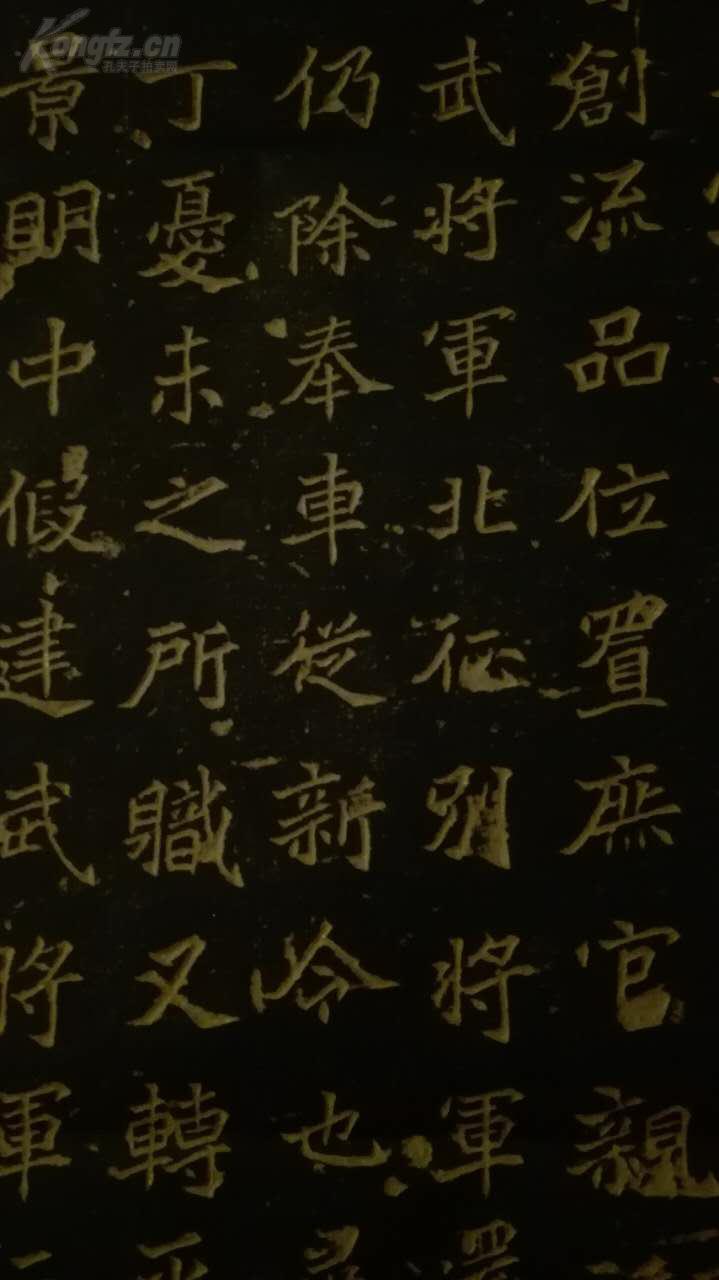 創流品位置庶官親
武將軍北征別將軍還
仍除奉車從新令也尋
丁憂未之所職又轉平
景明中假建武將軍
Kongfz.cn
孔夫子拍卖网